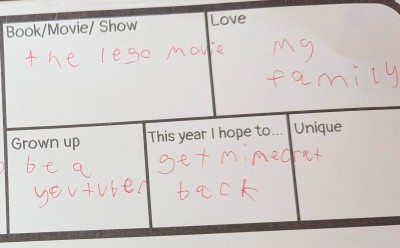 Book/Movie/ Show
Love
the lego movie
my
family
Grown up
This year I hope to...
Unique
be a
youtuber
get minecraft
back